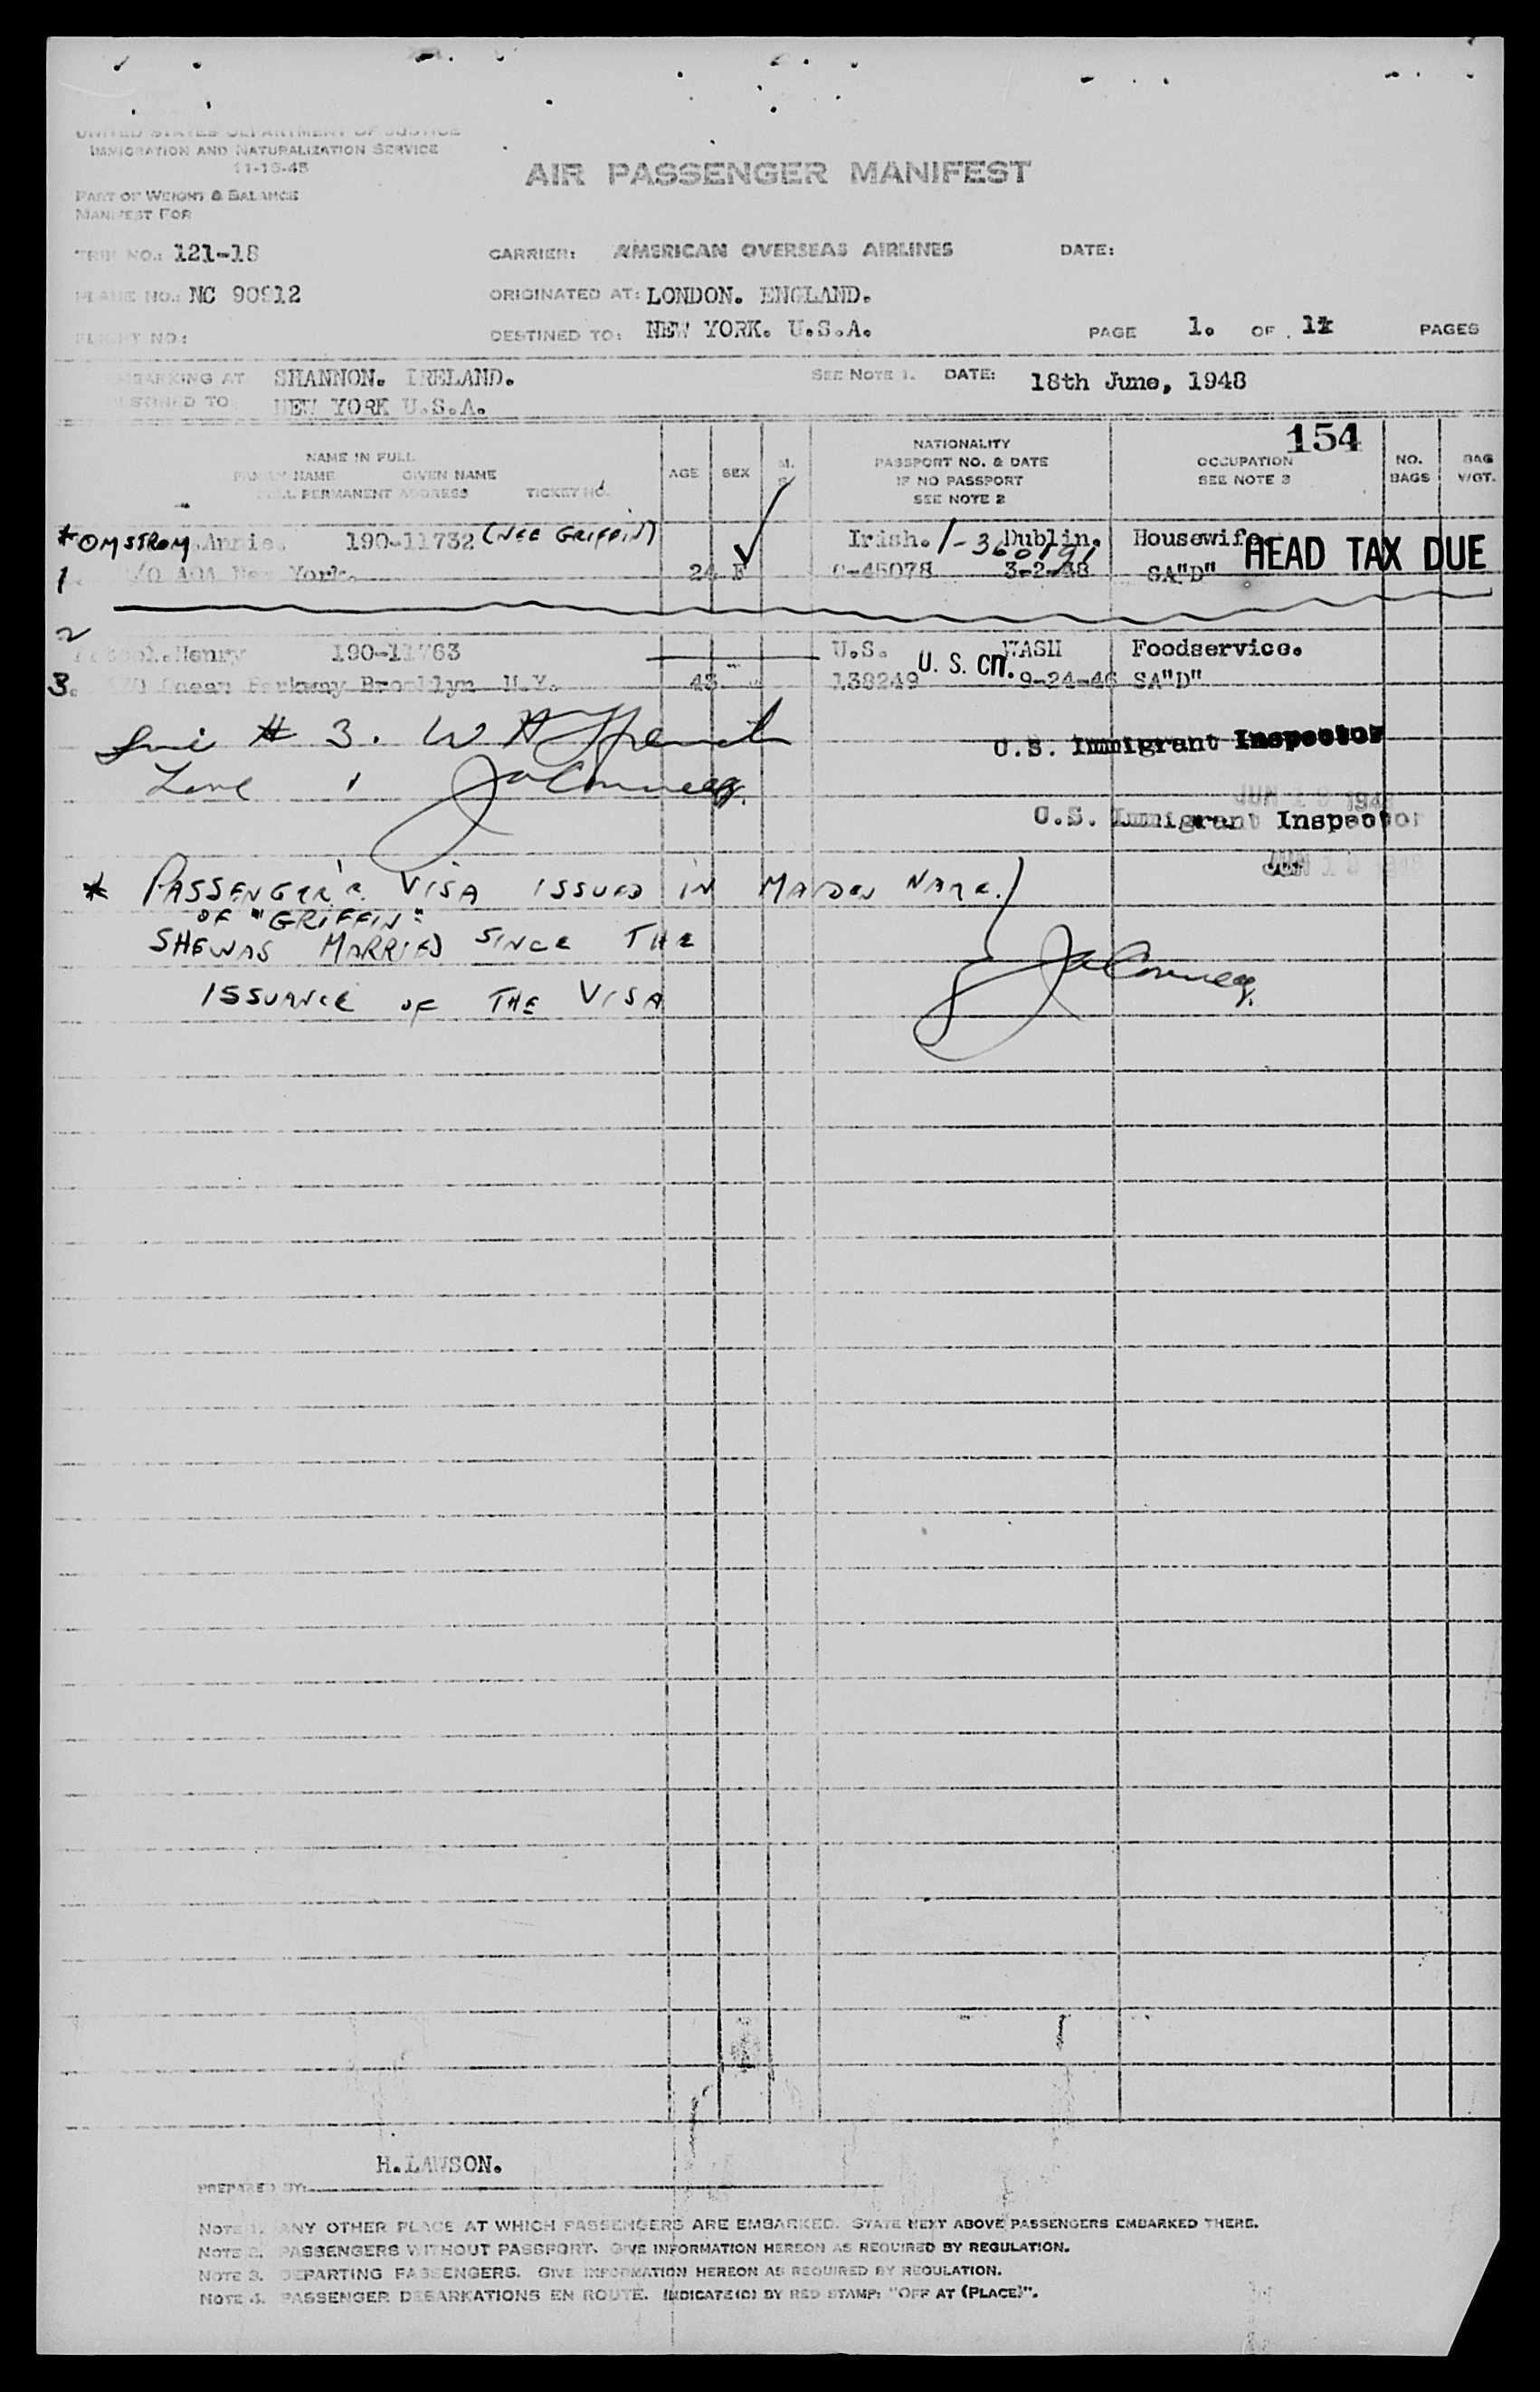 UNITED STATES DEPARTMENT OF JUSTICE
IMMIGRATION AND NATURALIZATION SERVICE
11-15-45
AIR PASSENGER MANIFEST
PART OF WEIGHT & BALANCE
MANIFEST FOR
TRIP NO.: 121-18 CARRIER: AMERICAN OVERSEAS AIRLINES DATE:
PLANE NO.: NC 90912 ORIGINATED AT: LONDON. ENGLAND.
FLIGHT NO.: DESTINED TO: NEW YORK. U.S.A. PAGE 1. OF PAGES
EMBARKING AT SHANNON. IRELAND. SEE NOTE 1. DATE: 18th June, 1948
DESTINED TO NEW YORK U.S.A.
154
NAME IN FULL
FAMILY NAME GIVEN NAME
FULL PERMANENT ADDRESS TICKET NO.
AGE SEX M.
NATIONALITY
PASSPORT NO. & DATE
IF NO PASSPORT
SEE NOTE 2
OCCUPATION
SEE NOTE 3
NO.
BAGS
BAG
WGT.
* OMSTROM. Annie. 190-11732 (NEE GRIFFIN) Irish. 1-360191 Dublin. Housewife. HEAD TAX DUE
1. C/O AOA New York. 24 F C-45078 3-2-48 SA"D"
2
Henry 190-11763 U.S. WASH Foodservice.
3. Ocean Parkway Brooklyn N.Y. 43 138249 U. S. CIT. 9-24-46 SA"D"
Line # 3. W H French
U.S. Immigrant Inspector
Line 1
JUN 19 1948
U.S. Immigrant Inspector
JUN 19 1948
* PASSENGER'S VISA ISSUED IN MAIDEN NAME.
OF "GRIFFIN"
SHE WAS MARRIED SINCE THE
ISSUANCE OF THE VISA
H.LAWSON.
PREPARED BY:
NOTE 1. ANY OTHER PLACE AT WHICH PASSENGERS ARE EMBARKED. STATE NEXT ABOVE PASSENGERS EMBARKED THERE.
NOTE 2. PASSENGERS WITHOUT PASSPORT. GIVE INFORMATION HEREON AS REQUIRED BY REGULATION.
NOTE 3. DEPARTING PASSENGERS. GIVE INFORMATION HEREON AS REQUIRED BY REGULATION.
NOTE 4. PASSENGER DEBARKATIONS EN ROUTE. INDICATE(D) BY RED STAMP: "OFF AT (PLACE)".